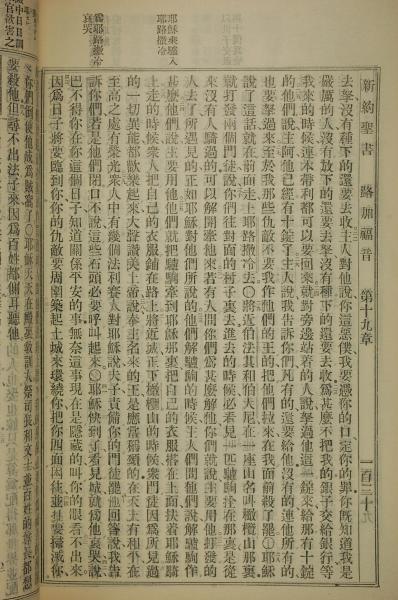 新約聖書　路加福音　第十九章　一百三十
去拏沒有種下的還要去收主人對他說你這惡僕我要憑你的口定你的罪你既知道我是
嚴厲的人沒有放下的還要去拏沒有種下的還要去收爲甚麼不把我的銀子交給銀行等
我來的時候連本帶利都可以要回來就對旁邊站着的人說拏過他這一錠來給那有十錠
的他們說主阿他已經有十錠了主人說我告訴你們凡有的還要給他沒有的連他所有的
也要拏過來至於我那些仇敵不要我作他們的王的把他們拉來在我面前殺了罷○耶穌
說了這話就在前面走上耶路撒冷去○將近伯法其和伯大尼在一座山名叫橄欖山那裏
就打發兩個門徒說你們往對面的村子裏去進去的時候必看見一匹驢駒拴在那裏是從
來沒有人騎過的可以解開牽他來若有人問你們爲甚麼解他你們就說主要用他打發的
人去了所遇見的正如耶穌對他們所說的他們解驢駒的時候主人們問他們說解驢駒作
甚麼他們說主要用他他們就把驢駒牽到耶穌那裏把自己的衣服搭在上面扶着耶穌騎
上走的時候衆人把自己的衣服鋪在路上將近城正下橄欖山的時候衆門徒因爲所見過
的一切異能都歡樂起來大聲讚美上帝說奉主名來的王是應當稱頌的在天上有和平在
至高之處有榮光衆人中有幾個法利賽人對耶穌說夫子責備你的門徒罷他回答說我告
訴你們若是他們閉口不說這些石頭必要呼叫起來○耶穌快到了看見城就爲他哀哭說
巴不得你在你這個日子知道關係你平安的事無奈這事現在是隱藏的叫你的眼看不出來
因爲日子將要臨到你你的仇敵要周圍築起土城來環繞你把你四面困住並且要掃滅你
耶穌來騎入
耶路撒冷
爲耶路撒冷
哀哭
你們倒使他成爲賊窩了○耶穌天天在殿裏敎訓人祭司長和文士並百姓的尊長都想
要殺他但尋不出法子來因爲百姓都側耳聽他